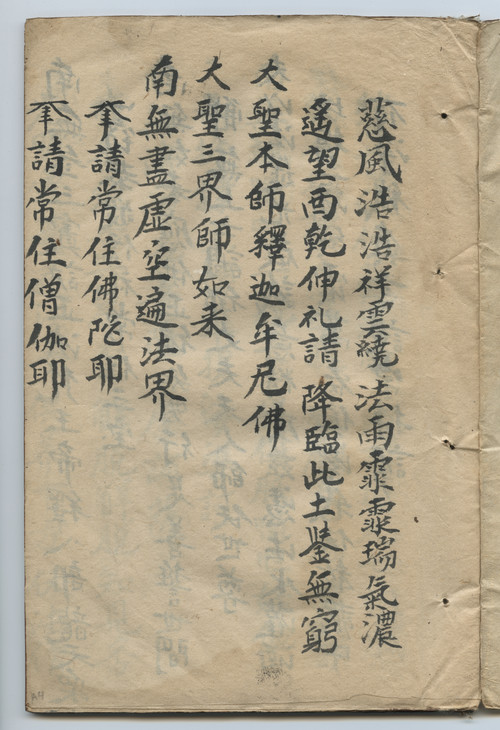 慈風浩浩祥雲繞 法雨霏霏瑞氣濃
遙望西乾伸礼請 降臨此土鉴無窮
大聖本師釋迦牟尼佛
大聖三界師如来
南無盡虛空遍法界
奉請常住佛陀耶
奉請常住僧伽耶